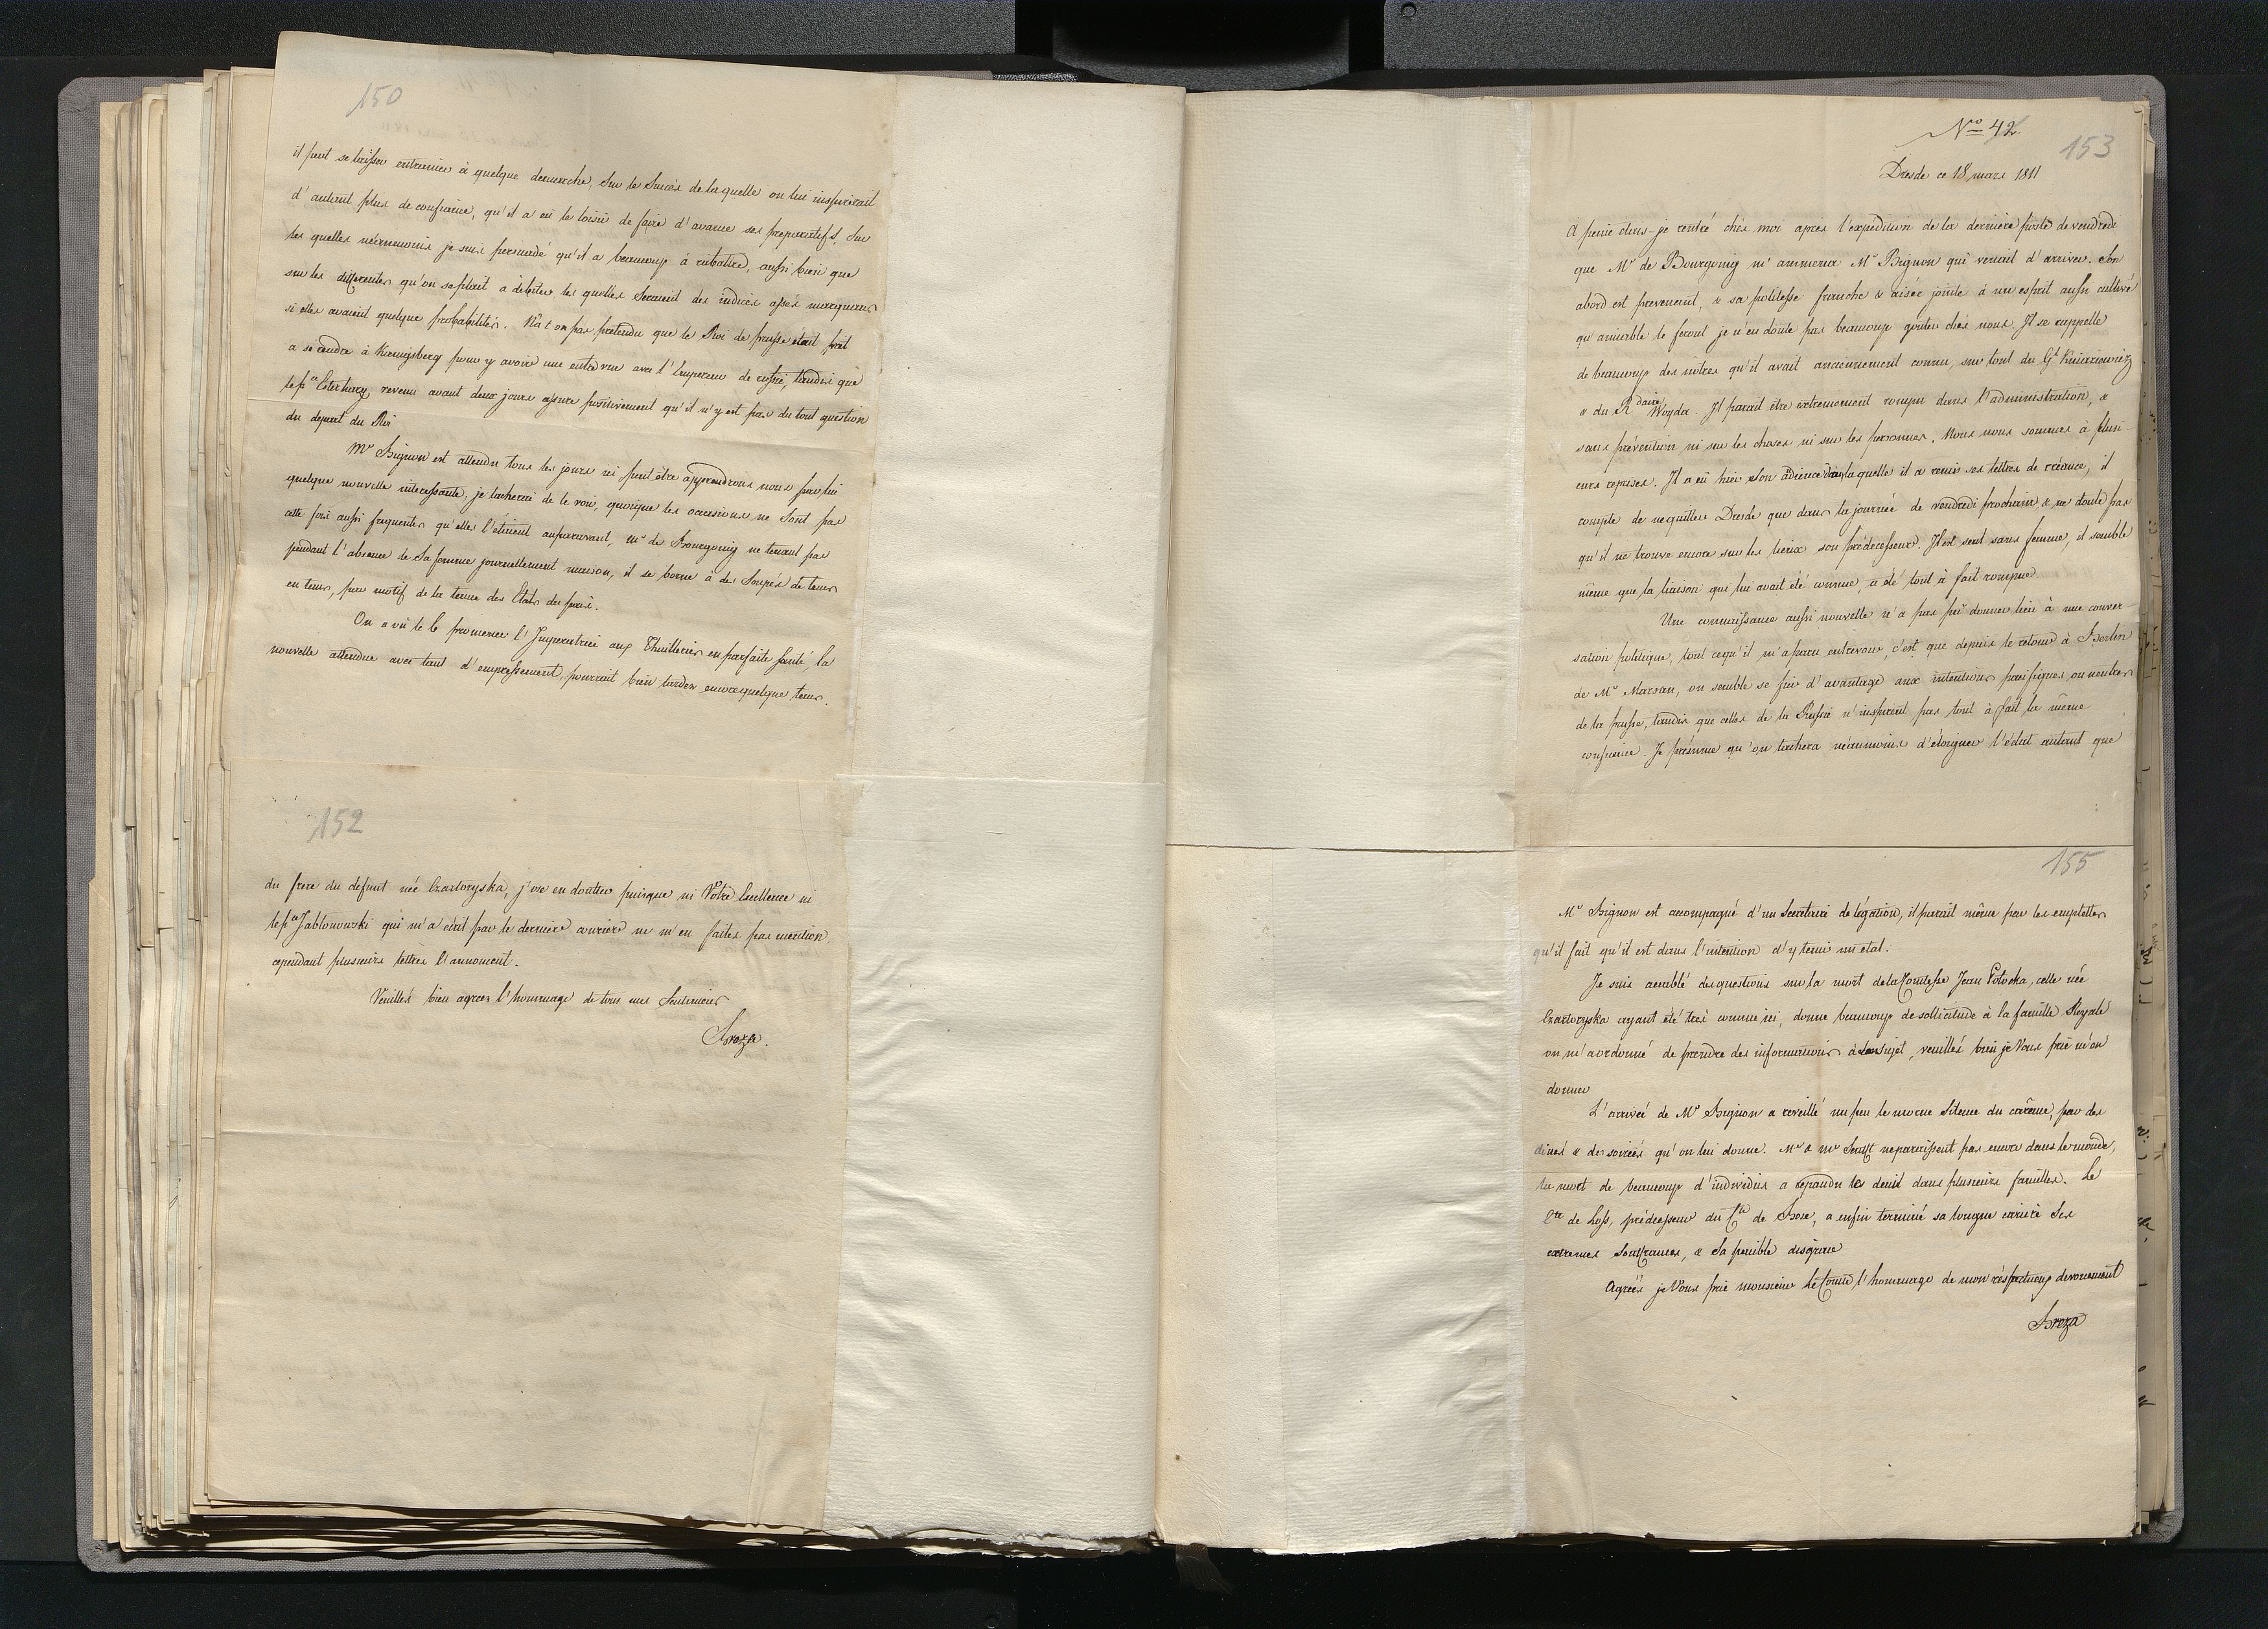 150
il peut se laisser entrainer à quelque demarche, Sur le Succès de laquelle on lui inspirerait
d'autant plus de confiance, qu'il a eû le loisir de faire d'avance ses preparatifs, Sur
les quelles néanmoins je suis persuadé qu'il a beaucoup à rabattre, aussi bien que
sur les differentes qu'on se plait a debiter les quelles Seraient des indices assés marquans
si elles avaient quelque probabilités. N'a t on pas prétendu que le Roi de prusse était prêt
a se rendre à Kœnigsberg pour y avoir une entrevue avec l'Empereur de russie, tandis que
le pce Esterhazy revenu avant deux jours assure positivement qu'il n'y est pas du tout question
du depart du Roi
Mr Bignon est attendu tous les jours ici peut être apprendrons nous par lui
quelque nouvelle interessante, je tacherai de le voir, quoique les occasions ne Sont pas
cette fois aussi frequentes qu'elles l'étaient auparavant, mr de Bourgoing ne tenant pas
pendant l'absence de Sa femme journellement maison, il se borne à des Soupés de tems
en tems, par motif de la tenue des Etats du païs.
On a vû le 6 promener l'Imperatrice aux Thuilleries en parfaite Santé la
nouvelle attendue avec tant d'empressement, pourrait bien tarder encore quelque tems.
152
du frere du defunt née Czartoryska, j'ose en douter puisque ni Votre Excellence ni
le pce Jablonowski qui m'a écrit par le dernier courier ne m'en faites pas mention,
cependant plusieurs lettres l'annoncent.
Veuillés bien agréer l'hommage de tous mes Sentimens
Breza.
No 42.
153
Dresde ce 18 mars 1811
A peine étais-je rentré chés moi après l'expédition de la dernière poste de vendredi
que Mr de Bourgoing m'ammena Mr Bignon qui venait d'arriver. Son
abord est prevenent, & sa politesse franche & aisée jointe à un esprit aussi cultivé
qu'amiable le feront je n'en doute pas beaucoup gouter chés nous. Il se rappelle
de beaucoup des notres qu'il avait anciennement connu, sur tout du Gl Kniaziewicz
& du Rdaire Woyda. Il parait être extremement rompu dans l'administration, &
sans prévention ni sur les choses ni sur les personnes. Nous nous sommes à plusi-
eurs reprises. Il a eû hier son audience dans laquelle il a remis ses lettres de créance, il
compte de ne quitter Dresde que dans la journée de vendredi prochain & ne doute pas
qu'il ne trouve encore sur les lieux son prédécesseur. Il est seul sans femme, il semble
même que la liaison qui lui avait été connue, a été tout à fait rompue.
Une connaissance aussi nouvelle n'a pas pû donner lieu à une conver-
sation politique, tout ce qu'il m'a paru entrevoir, c'est que depuis le retour à Berlin
de Mr Marsan, on semble se fier d'avantage aux intentions pacifiques, ou neutres
de la prusse, tandis que celles de la Russie n'inspirent pas tout à fait la même
confiance. Je présume qu'on tachera néanmoins d'éloigner l'éclat autant que
155
Mr Bignon est accompagné d'un Secretaire de légation, il parait même par les emplettes
qu'il fait qu'il est dans l'intention d'y tenir un etat.
Je suis accablé de questions sur la mort de la Comtesse Jean Potocka, celle née
Czartoryska ayant été très connue ici, donne beaucoup de sollicitude à la famille Royale
on m'a ordonné de prendre des informations à son sujet, veuillés bien je Vous prie m'en
donner
L'arrivée de Mr Bignon a reveillé un peu le morne Silence du carême, par des
dinés & des soirées qu'on lui donne. Mr & me Senfft ne paraissent pas encore dans le monde,
la mort de beaucoup d'individus a repandu les deuil dans plusieurs familles. Le
Cte de Loss, prédécesseur du Cte de Bose, a enfin terminé sa longue carriere Ses
extremes Souffrances, & Sa penible disgrace
Agreés je Vous prie monsieur le Comte l'hommage de mon réspectueux devouement
Breza